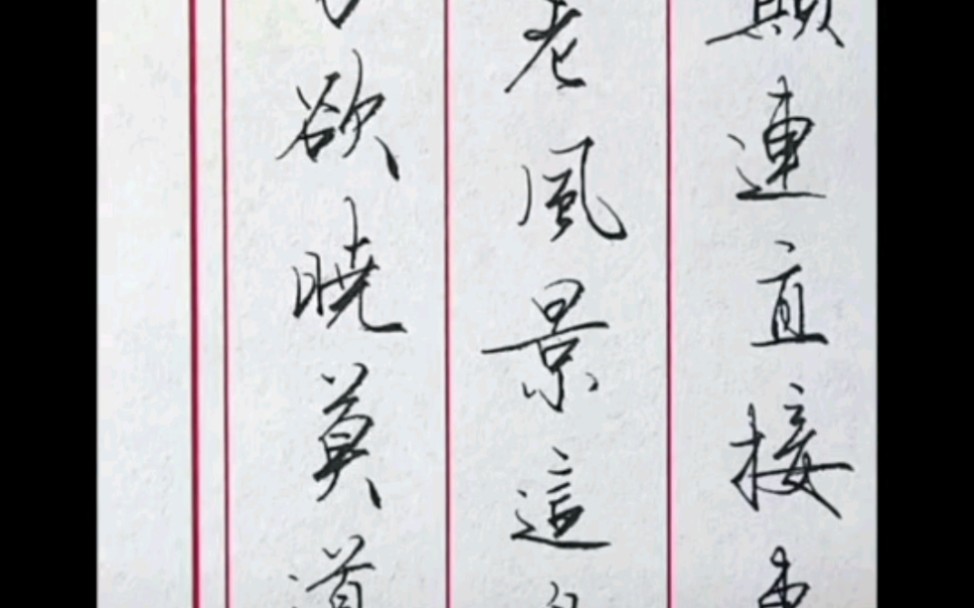 連直接
老風景這
欲曉莫道